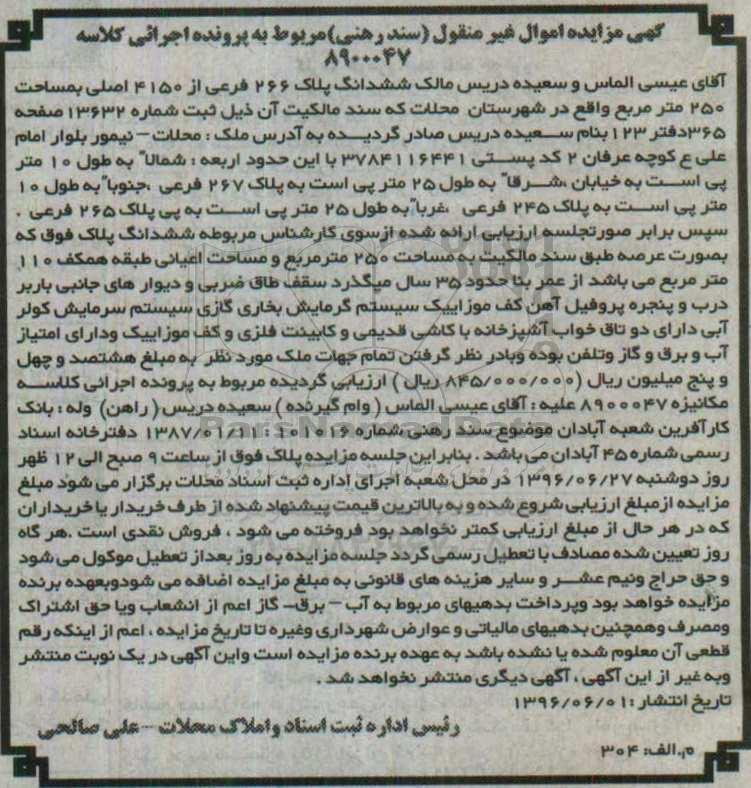 گهی مزایده اموال غیر منقول (سند رهنی) مربوط به پرونده اجرائی کلاسه
۸۹۰۰۰۴۷
آقای عیسی الماس و سعیده دریس مالک ششدانگ پلاک ۲۶۶ فرعی از ۴۱۵۰ اصلی بمساحت
۲۵۰ متر مربع واقع در شهرستان محلات که سند مالکیت آن ذیل ثبت شماره ۱۳۶۳۲ صفحه
۳۶۵دفتر ۱۲۳ بنام سعیده دریس صادر گردیده به آدرس ملک : محلات – نیمور بلوار امام
علی ع کوچه عرفان ۲ کد پستی ۳۷۸۴۱۱۶۴۴۱ با این حدود اربعه : شمالاً به طول ۱۰ متر
پی است به خیابان ،شرقاً به طول ۲۵ متر پی است به پلاک ۲۶۷ فرعی ،جنوباً به طول ۱۰
متر پی است به پلاک ۲۴۵ فرعی ،غرباً به طول ۲۵ متر پی است به پی پلاک ۲۶۵ فرعی .
سپس برابر صورتجلسه ارزیابی ارائه شده ازسوی کارشناس مربوطه ششدانگ پلاک فوق که
بصورت عرصه طبق سند مالکیت به مساحت ۲۵۰ مترمربع و مساحت اعیانی طبقه همکف ۱۱۰
متر مربع می باشد از عمر بنا حدود ۳۵ سال میگذرد سقف طاق ضربی و دیوار های جانبی باربر
درب و پنجره پروفیل آهن کف موزاییک سیستم گرمایش بخاری گازی سیستم سرمایش کولر
آبی دارای دو تاق خواب آشپزخانه با کاشی قدیمی و کابینت فلزی و کف موزاییک ودارای امتیاز
آب و برق و گاز وتلفن بوده وبادر نظر گرفتن تمام جهات ملک مورد نظر به مبلغ هشتصد و چهل
و پنج میلیون ریال (۸۴۵/۰۰۰/۰۰۰ ریال ) ارزیابی گردیده مربوط به پرونده اجرائی کلاسه
مکانیزه ۸۹۰۰۰۴۷ علیه : آقای عیسی الماس ( وام گیرنده ) سعیده دریس ( راهن) وله : بانک
کارآفرین شعبه آبادان موضوع سند رهنی شماره ۱۰۱۰۱۶ : ۱۳۸۷/۰۱/۱۱ دفترخانه اسناد
رسمی شماره ۴۵ آبادان می باشد . بنابراین جلسه مزایده پلاک فوق از ساعت ۹ صبح الی ۱۲ ظهر
روز دوشنبه ۱۳۹۶/۰۶/۲۷ در محل شعبه اجرای اداره ثبت اسناد محلات برگزار می شود مبلغ
مزایده ازمبلغ ارزیابی شروع شده و به بالاترین قیمت پیشنهاد شده از طرف خریدار یا خریداران
که در هر حال از مبلغ ارزیابی کمتر نخواهد بود فروخته می شود ، فروش نقدی است .هر گاه
روز تعیین شده مصادف با تعطیل رسمی گردد جلسه مزایده به روز بعداز تعطیل موکول می شود
و حق حراج ونیم عشر و سایر هزینه های قانونی به مبلغ مزایده اضافه می شودوبعهده برنده
مزایده خواهد بود وپرداخت بدهیهای مربوط به آب – برق– گاز اعم از انشعاب ویا حق اشتراک
ومصرف وهمچنین بدهیهای مالیاتی و عوارض شهرداری وغیره تا تاریخ مزایده ، اعم از اینکه رقم
قطعی آن معلوم شده یا نشده باشد به عهده برنده مزایده است واین آگهی در یک نوبت منتشر
وبه غیر از این آگهی ، آگهی دیگری منتشر نخواهد شد .
تاریخ انتشار : ۱۳۹۶/۰۶/۰۱
رئیس اداره ثبت اسناد واملاک محلات – علی صالحی
م.الف: ۳۰۴
ParsNamadData